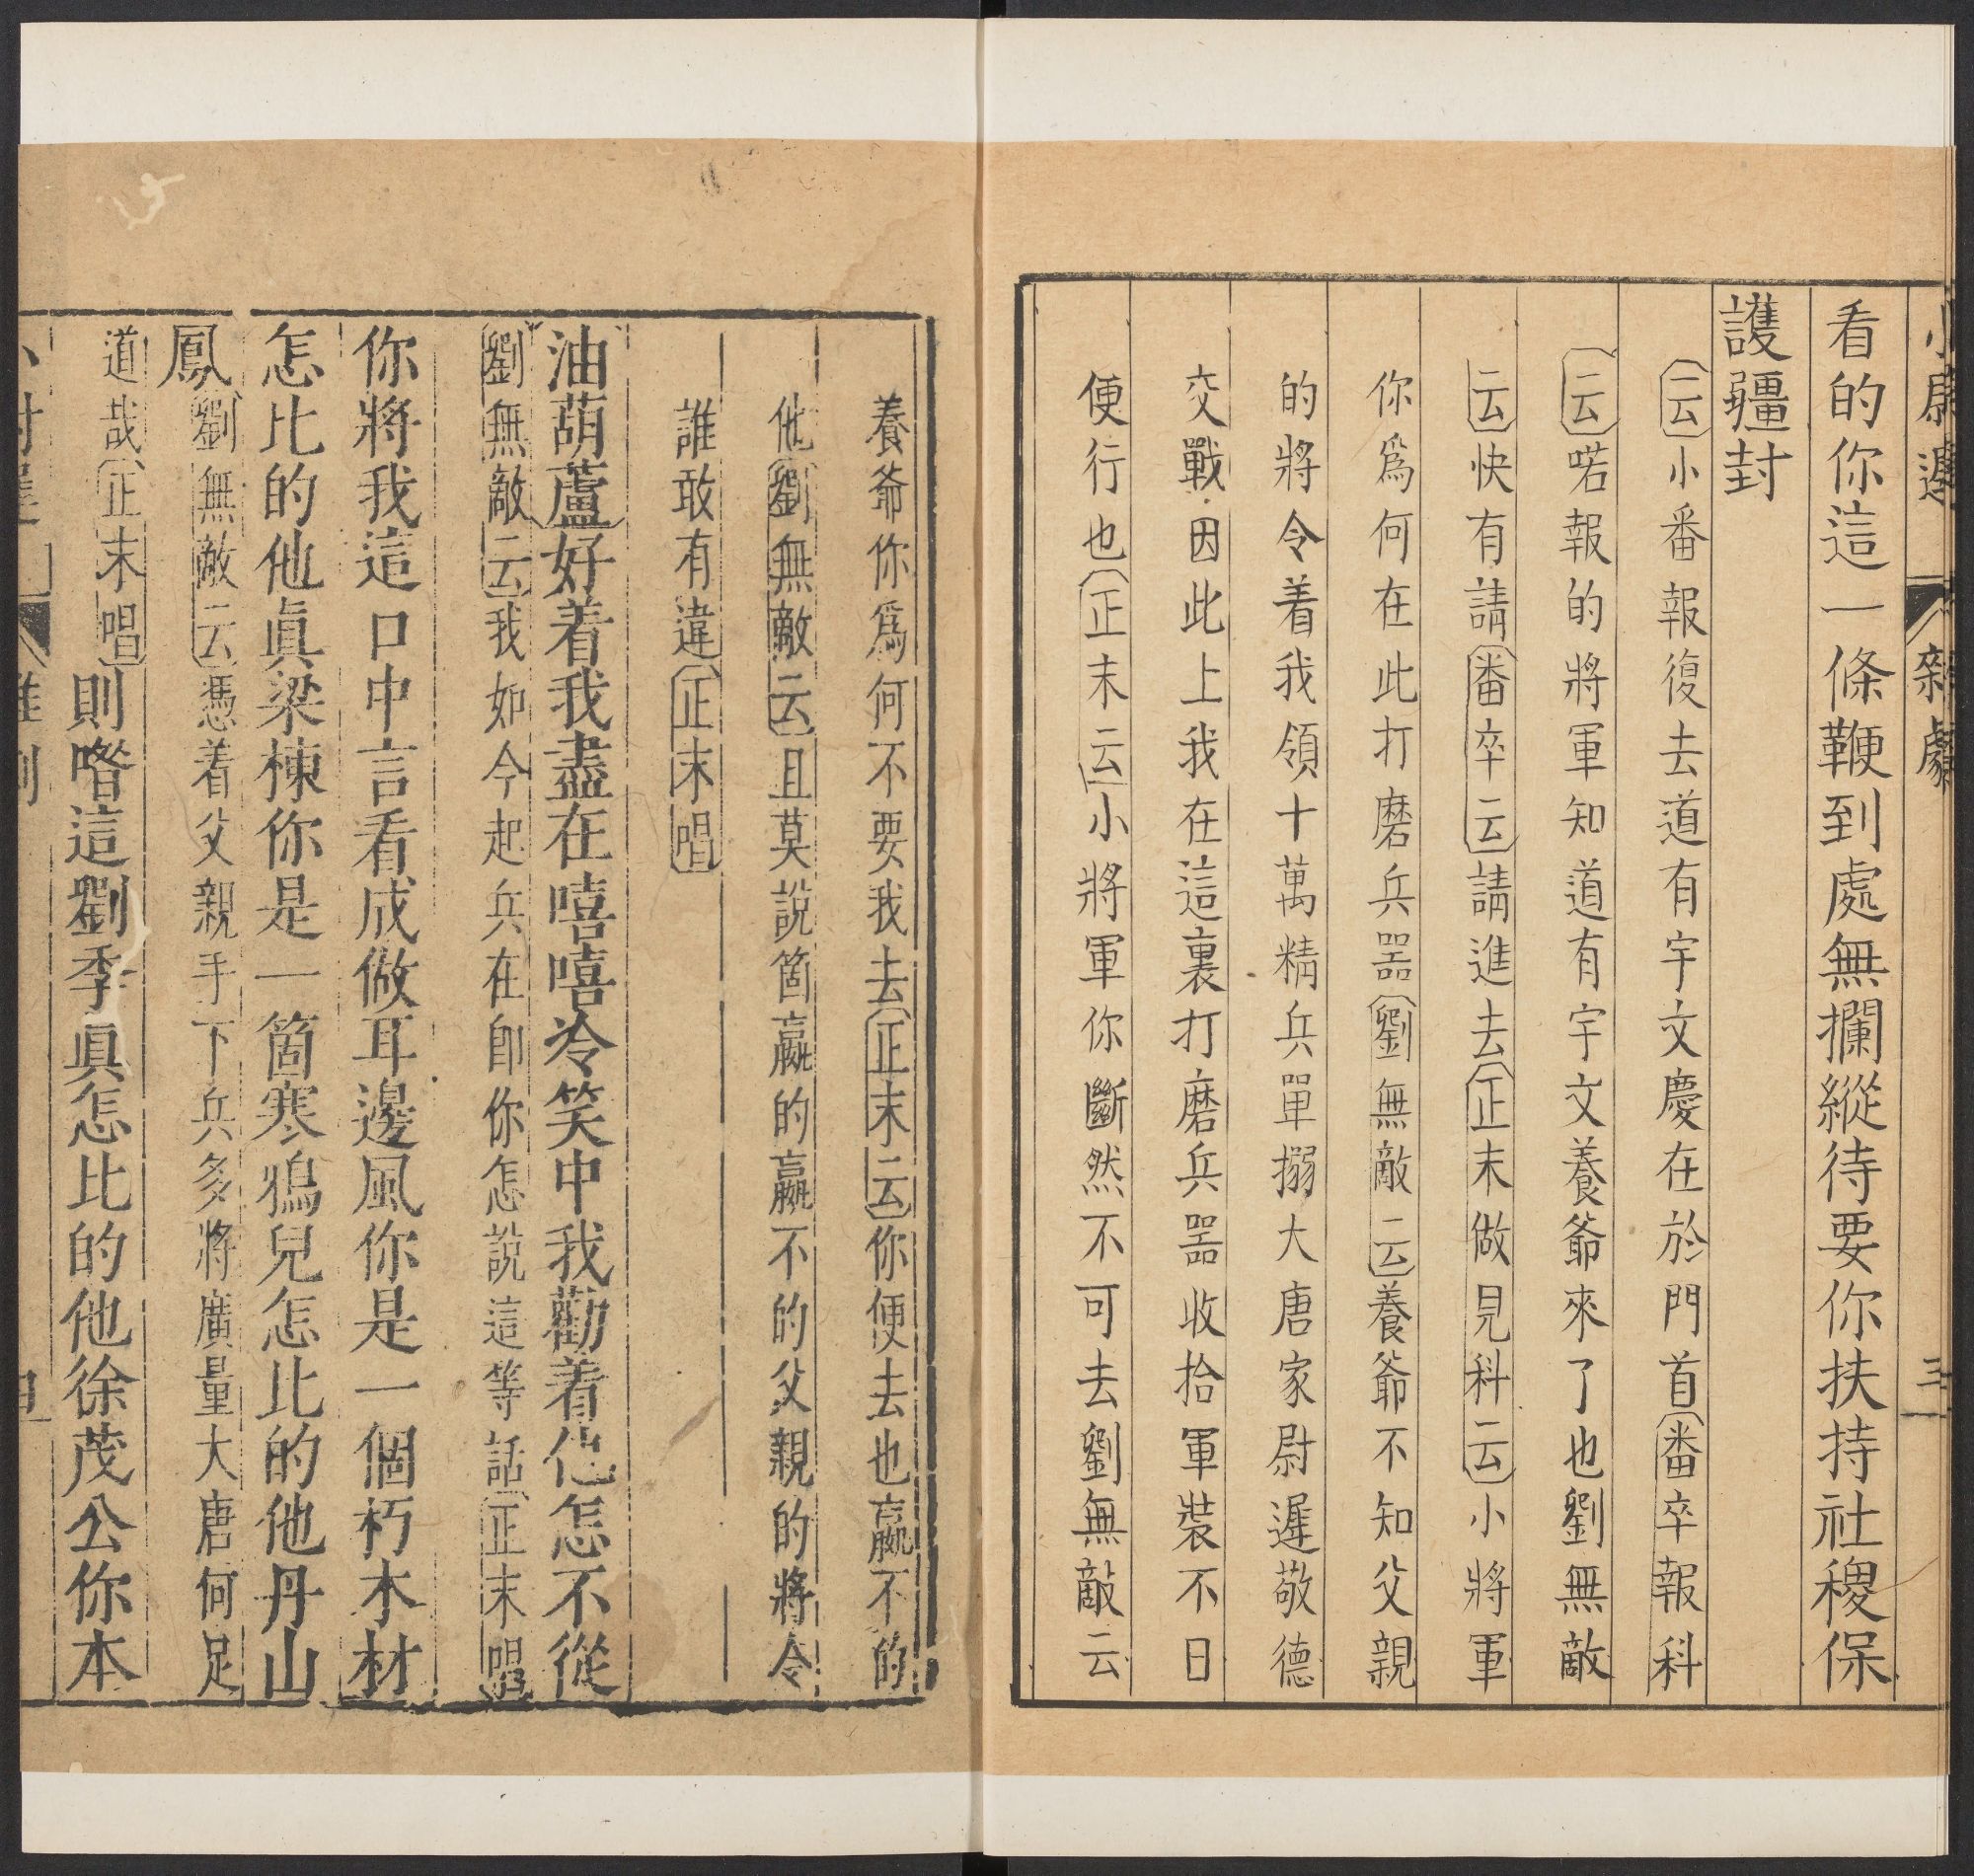 小尉遲 雜劇 三
看的你這一條鞭到處無攔縱待要你扶持社稷保
護疆封
云小番報復去道有宇文慶在於門首番卒報科
云喏報的將軍知道有宇文養爺來了也劉無敵
云快有請番卒云請進去正末做見科云小將軍
你爲何在此打磨兵器劉無敵云養爺不知父親
的將令着我領十萬精兵單搦大唐家尉遲敬德
交戰因此上我在這裏打磨兵器收拾軍裝不日
便行也正末云小將軍你斷然不可去劉無敵云
養爺你爲何不要我去正末云你便去也嬴不的
他劉無敵云且莫說箇嬴的嬴不的父親的將令
誰敢有違正末唱
油葫蘆好着我盡在嘻嘻冷笑中我勸着他怎不從
劉無敵云我如今起兵在卽你怎說這等話正末唱
你將我這口中言看成做耳邊風你是一個朽木材
怎比的他眞梁棟你是一箇寒鴉兒怎比的他丹山
鳳劉無敵云憑着父親手下兵多將廣量大唐何足
道哉正末唱則喒這劉季眞怎比的他徐茂公你本